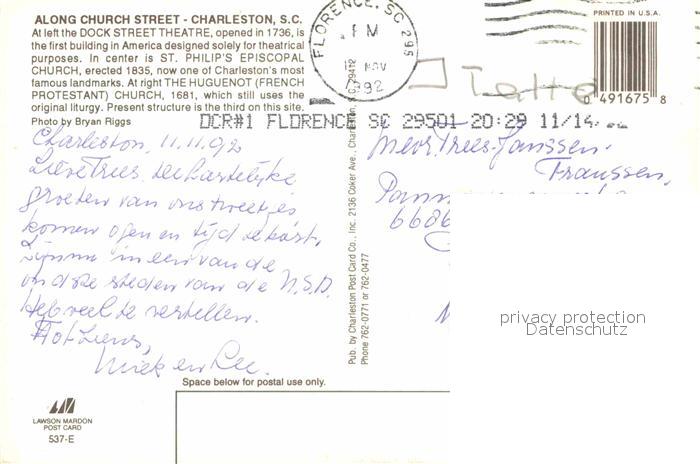 ALONG CHURCH STREET - CHARLESTON, S.C.
At left the DOCK STREET THEATRE, opened in 1736, is
the first building in America designed solely for theatrical
purposes. In center is ST. PHILIP'S EPISCOPAL
CHURCH, erected 1835, now one of Charleston's most
famous landmarks. At right THE HUGUENOT (FRENCH
PROTESTANT) CHURCH, 1681, which still uses the
original liturgy. Present structure is the third on this site.
Photo by Bryan Riggs
Charleston, 11.11.92
Lieve Trees. De hartelijke
groeten van ons tweetjes
komen ogen en tijd te kort.
Zijn nu in een van de
oudste steden van de U.S.A.
Heb veel te vertellen.
Tot ziens,
Miek en
LAWSON MARDON
POST CARD
537-E
Space below for postal use only.
Pub. by Charleston Post Card Co., Inc. 2136 Coker Ave., Charleston, S.C. 29412
Phone 762-0771 or 762-0477
FLORENCE, SC 295
PM
NOV
1992
PRINTED IN U.S.A.
0 491675 8
DCR#1 FLORENCE SC 29501 20:29 11/14/
Mevr. Trees Janssen-
Franssen,
6686
privacy protection
Datenschutz